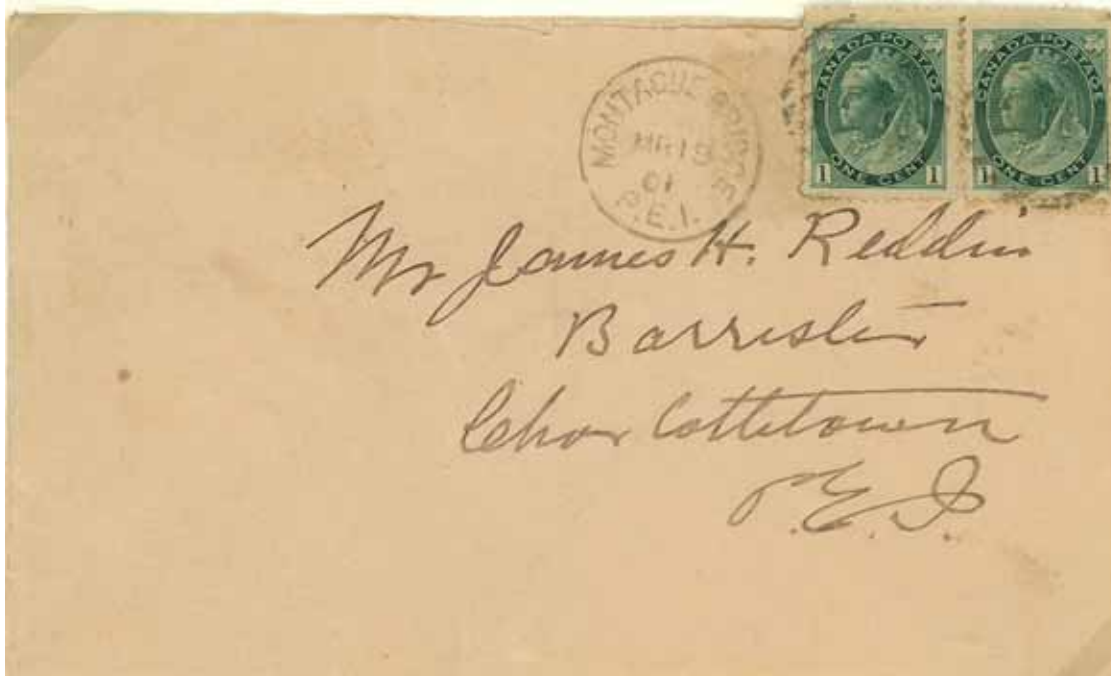 MONTAGUE BRIDGE
MR 19
01
P.E.I.
CANADA POSTAGE
1 ONE CENT 1
CANADA POSTAGE
1 ONE CENT 1
Mr James H. Reddin
Barrister
Charlottetown
P.E.I.